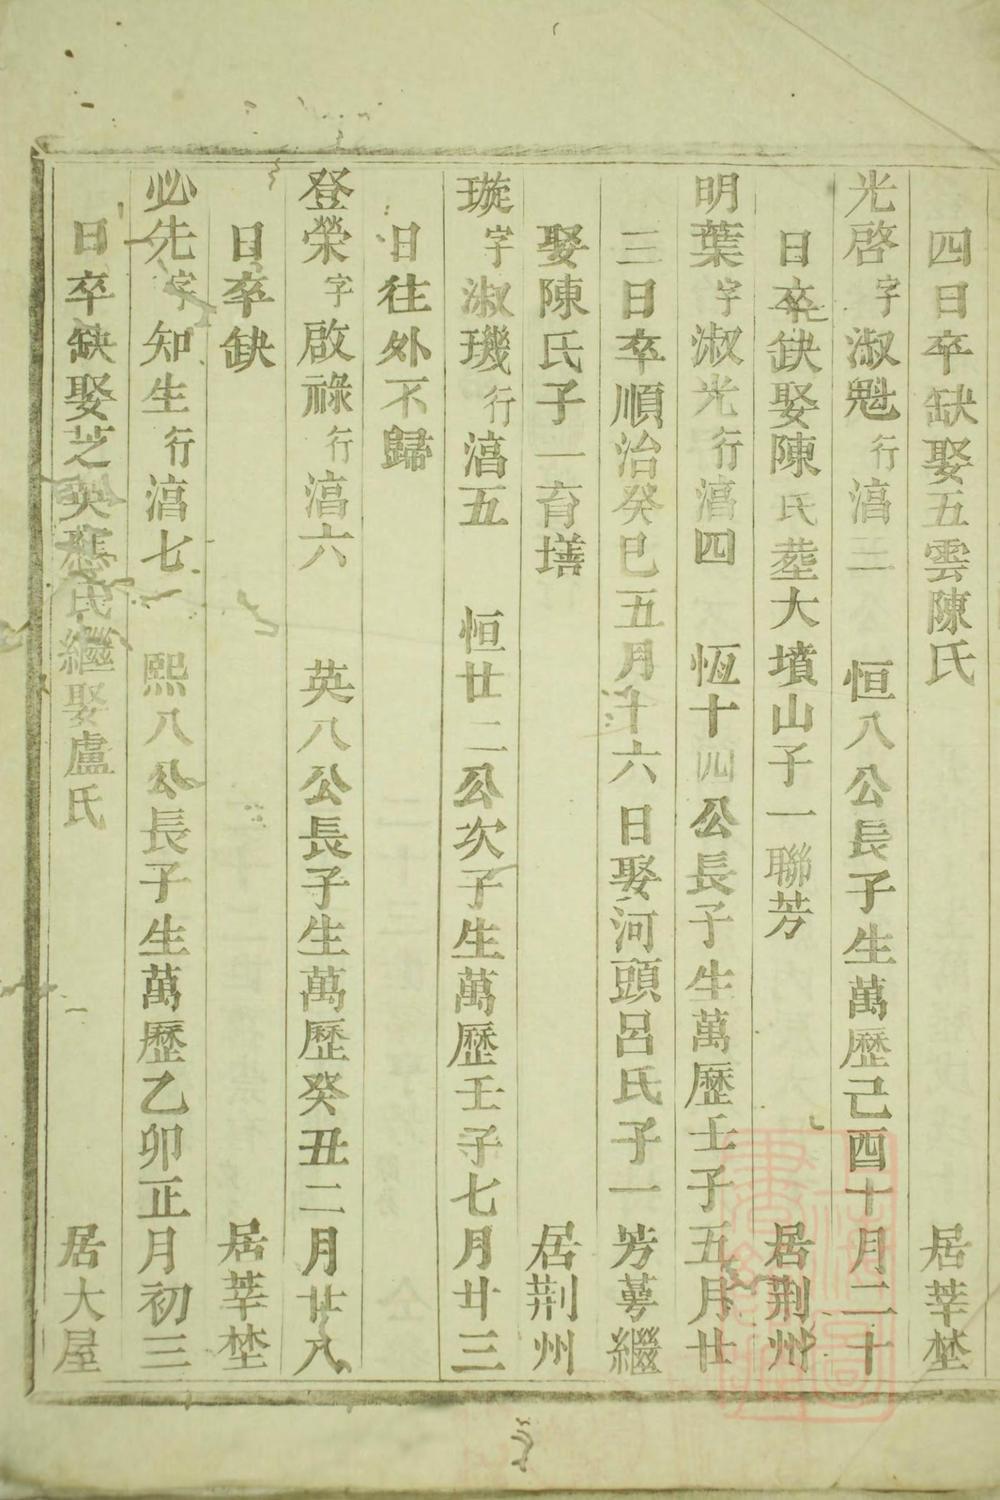 四日卒缺娶五雲陳氏　居莘塋
光啓字淑魁行湻三　恒八公長子生萬歷己酉十月二十
日卒缺娶陳氏塟大墳山子一聯芳　居荆州
明葉字淑光行湻四　恆十四公長子生萬歷壬子五月廿
三日卒順治癸巳五月十六日娶河頭呂氏子一芳蕚繼
娶陳氏子一育墡　居荆州
璇字淑璣行湻五　恒廿二公次子生萬歷壬子七月廿三
日往外不歸
登榮字啟祿行湻六　英八公長子生萬歷癸丑二月廿八
日卒缺　居莘塋
必先字知生行湻七　熙八公長子生萬歷乙卯正月初三
日卒缺娶芝英應氏繼娶盧氏　居大屋